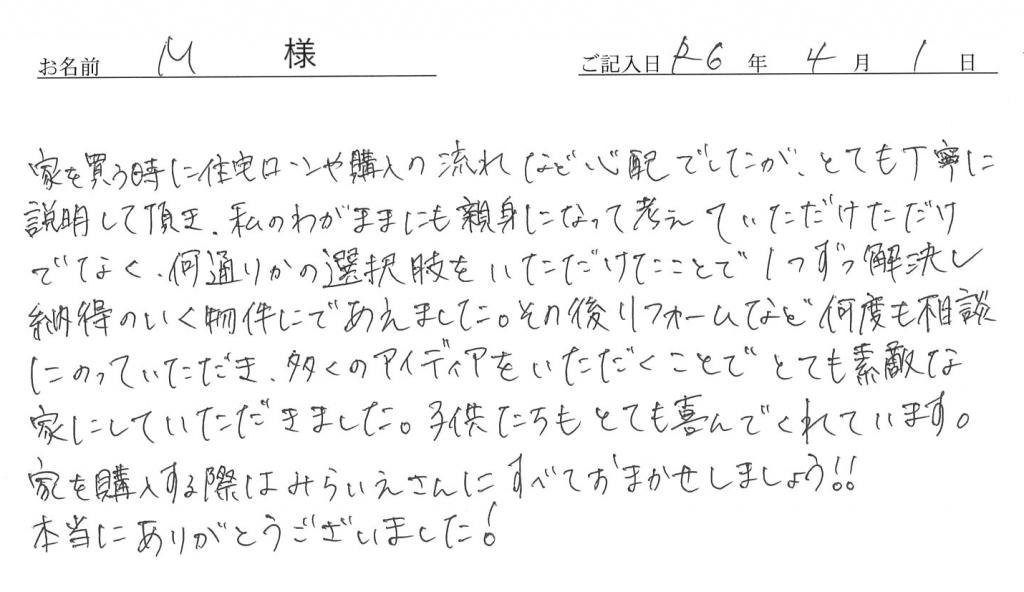 お名前 M 様 ご記入日 R6 年 4 月 1 日
家を買う時に住宅ローンや購入の流れなど心配でしたが、とても丁寧に
説明して頂き、私のわがままにも親身になって考えていただけただけ
でなく、何通りかの選択肢をいただけたことで1つずつ解決し
納得のいく物件にであえました。その後リフォームなど何度も相談
にのっていただき、多くのアイディアをいただくことでとても素敵な
家にしていただきました。子供たちもとても喜んでくれています。
家を購入する際はみらいえさんにすべておまかせしましょう!!
本当にありがとうございました!